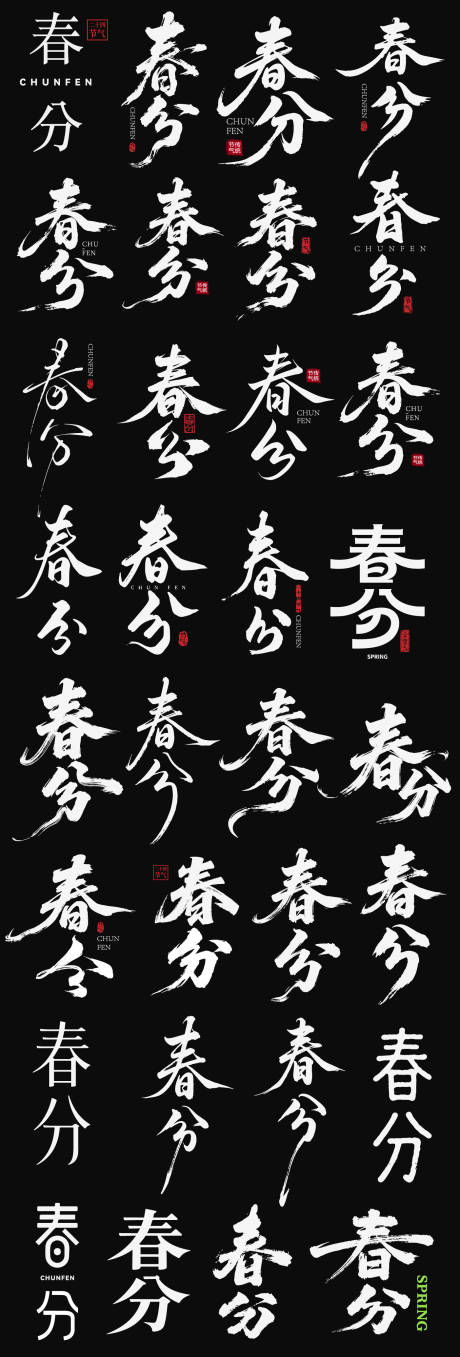 春
二十四
节气
CHUNFEN
分
春
分
CHUNFEN
春
分
CHUN
FEN
节传
气统
春
分
CHUNFEN
春
分
CHU
FEN
春
分
节传
气统
春
分
节气
春
分
CHUNFEN
节气
春
分
CHUNFEN
春
分
春
分
节传
气统
CHUN
FEN
春
分
CHU
FEN
节传
气统
春
分
春
分
CHUN FEN
春
分
CHUNFEN
春
分
SPRING
春
分
春
分
春
分
春
分
春
分
CHUN
FEN
二十四
节气
春
分
春
分
春
分
春
分
春
分
春
分
春
分
春
分
CHUNFEN
春
分
春
分
春
分
SPRING